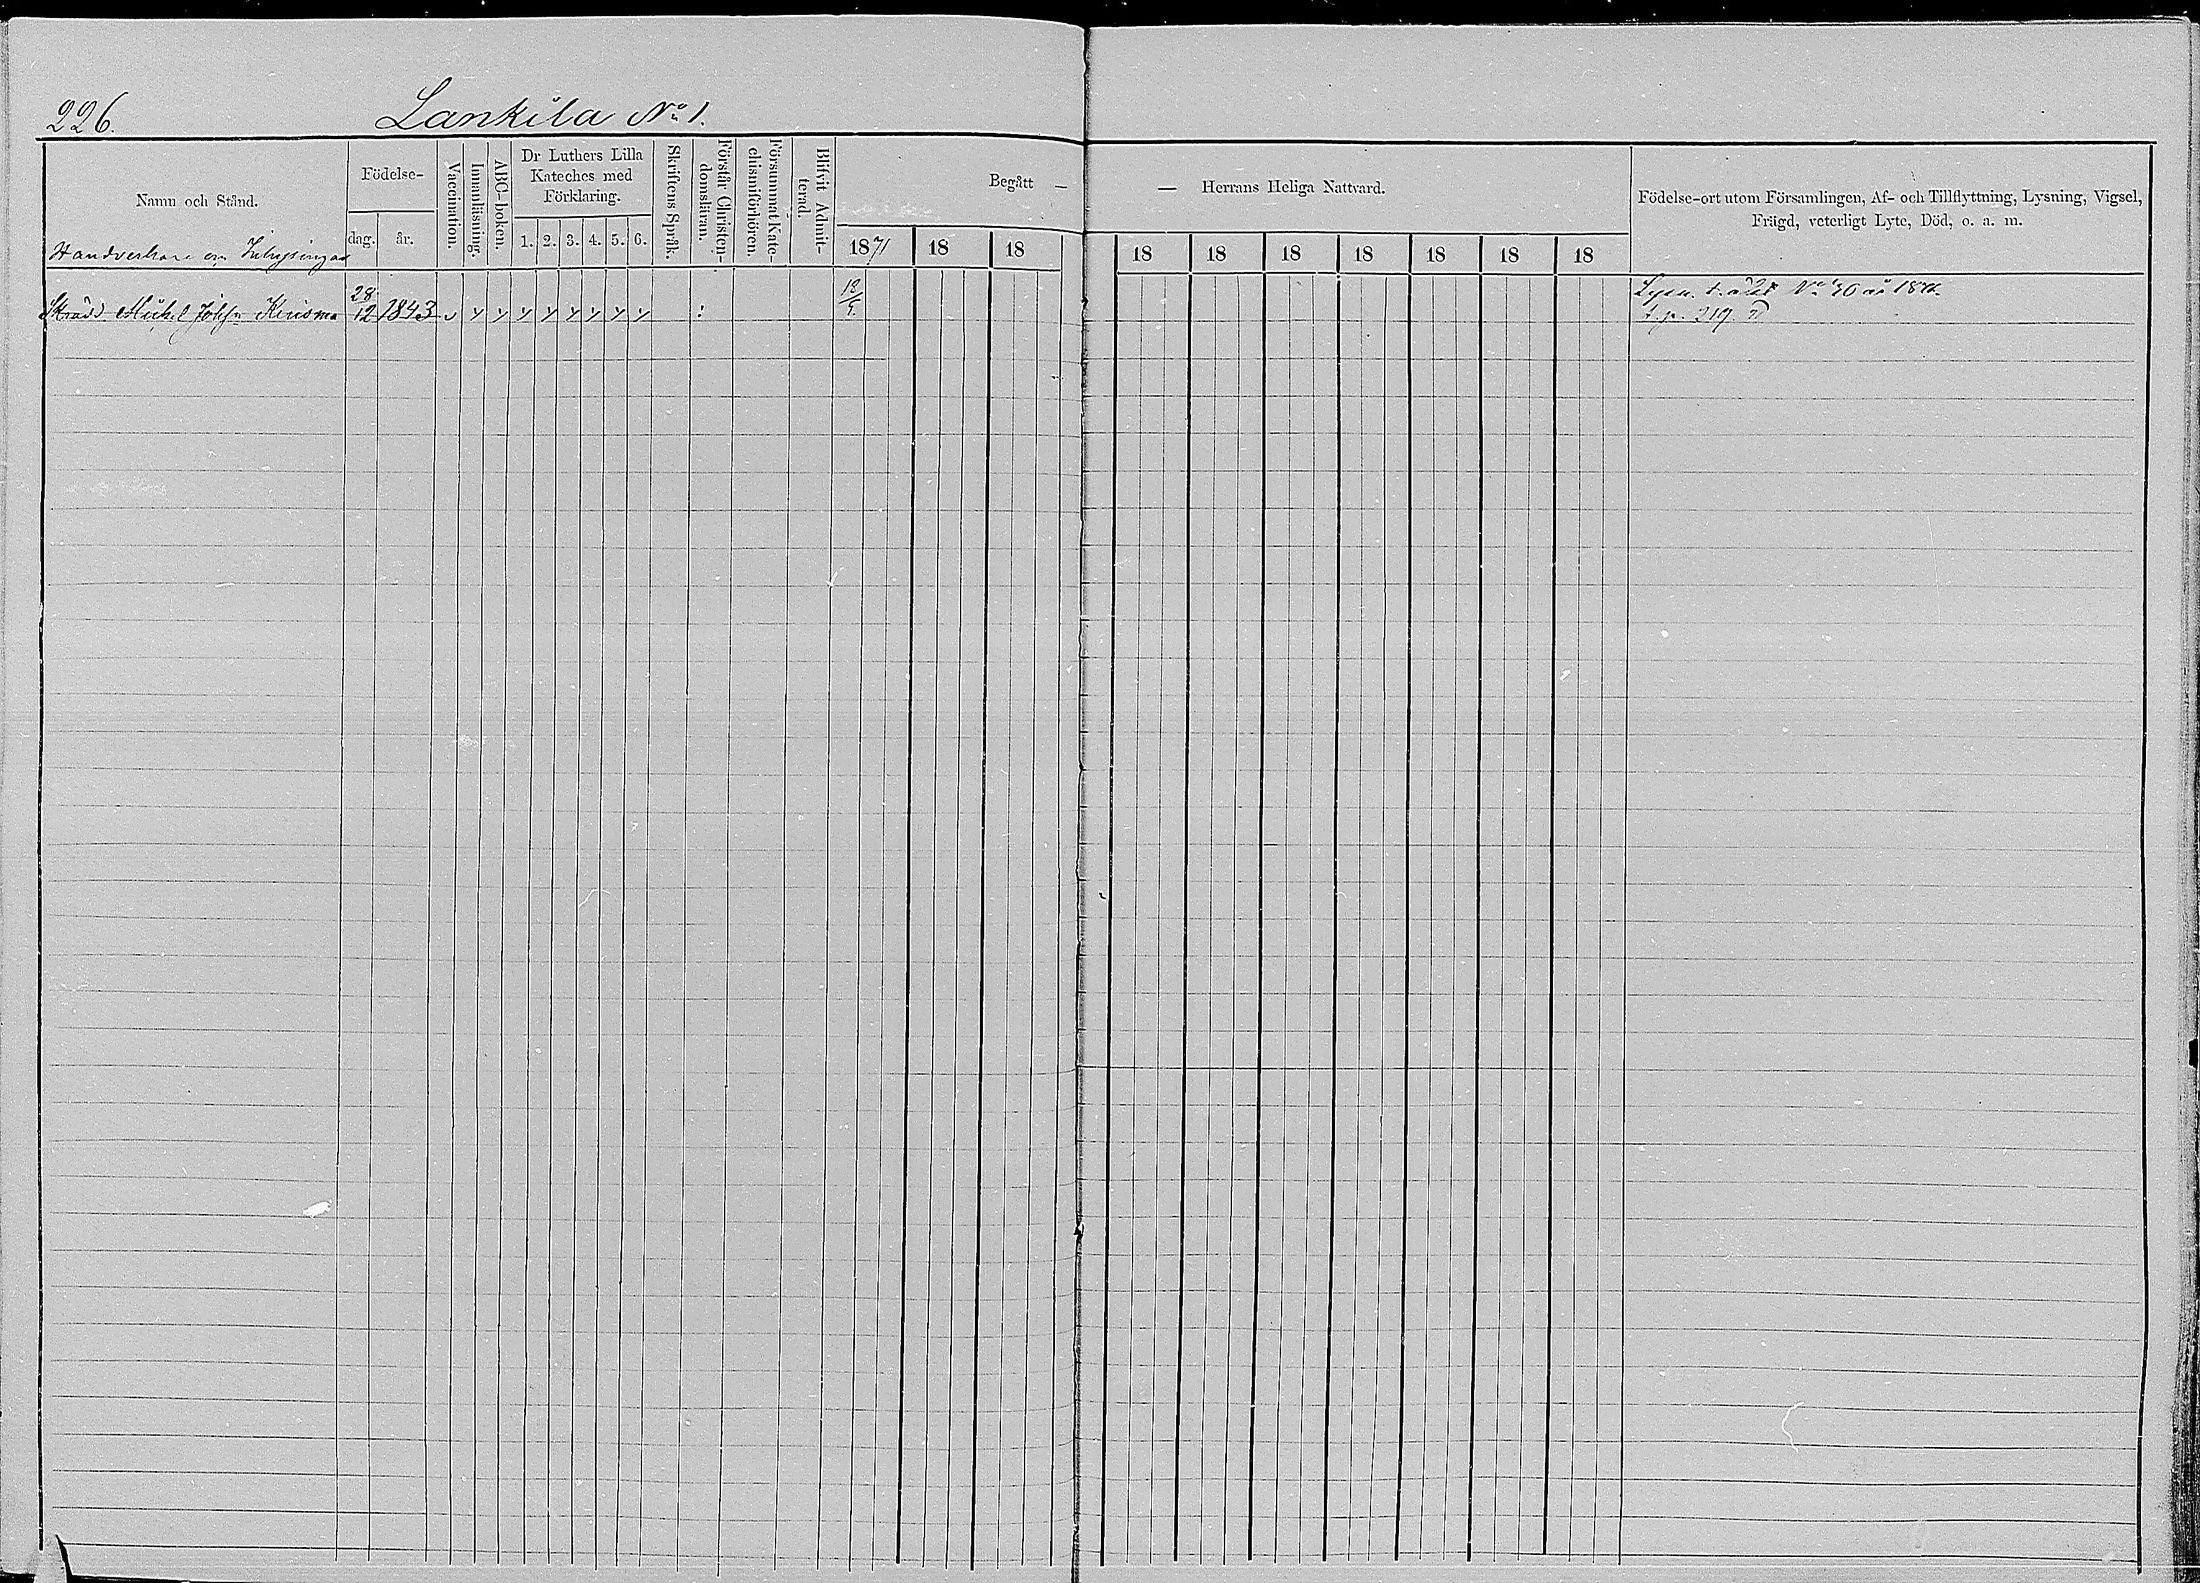 226.
Lankila No 1.
Namn och Stånd.
Födelse-
dag. år.
Vaccination.
Innanläsning.
ABC-boken.
Dr Luthers Lilla
Kateches med
Förklaring.
1. 2. 3. 4. 5. 6.
Skriftens Språk.
Förstår Christen-
domsläran.
Försummat Kate-
chismiförhören.
Blifvit Admit-
terad.
Begått —
1871 18 18
— Herrans Heliga Nattvard.
18 18 18 18 18 18 18
Födelse-ort utom Församlingen, Af- och Tillflyttning, Lysning, Vigsel,
Frägd, veterligt Lyte, Död, o. a. m.
Handverkare
Skrädd. Michel Kiuisma 28/12 1843
Lysn. t. No 30
t. p. 219.